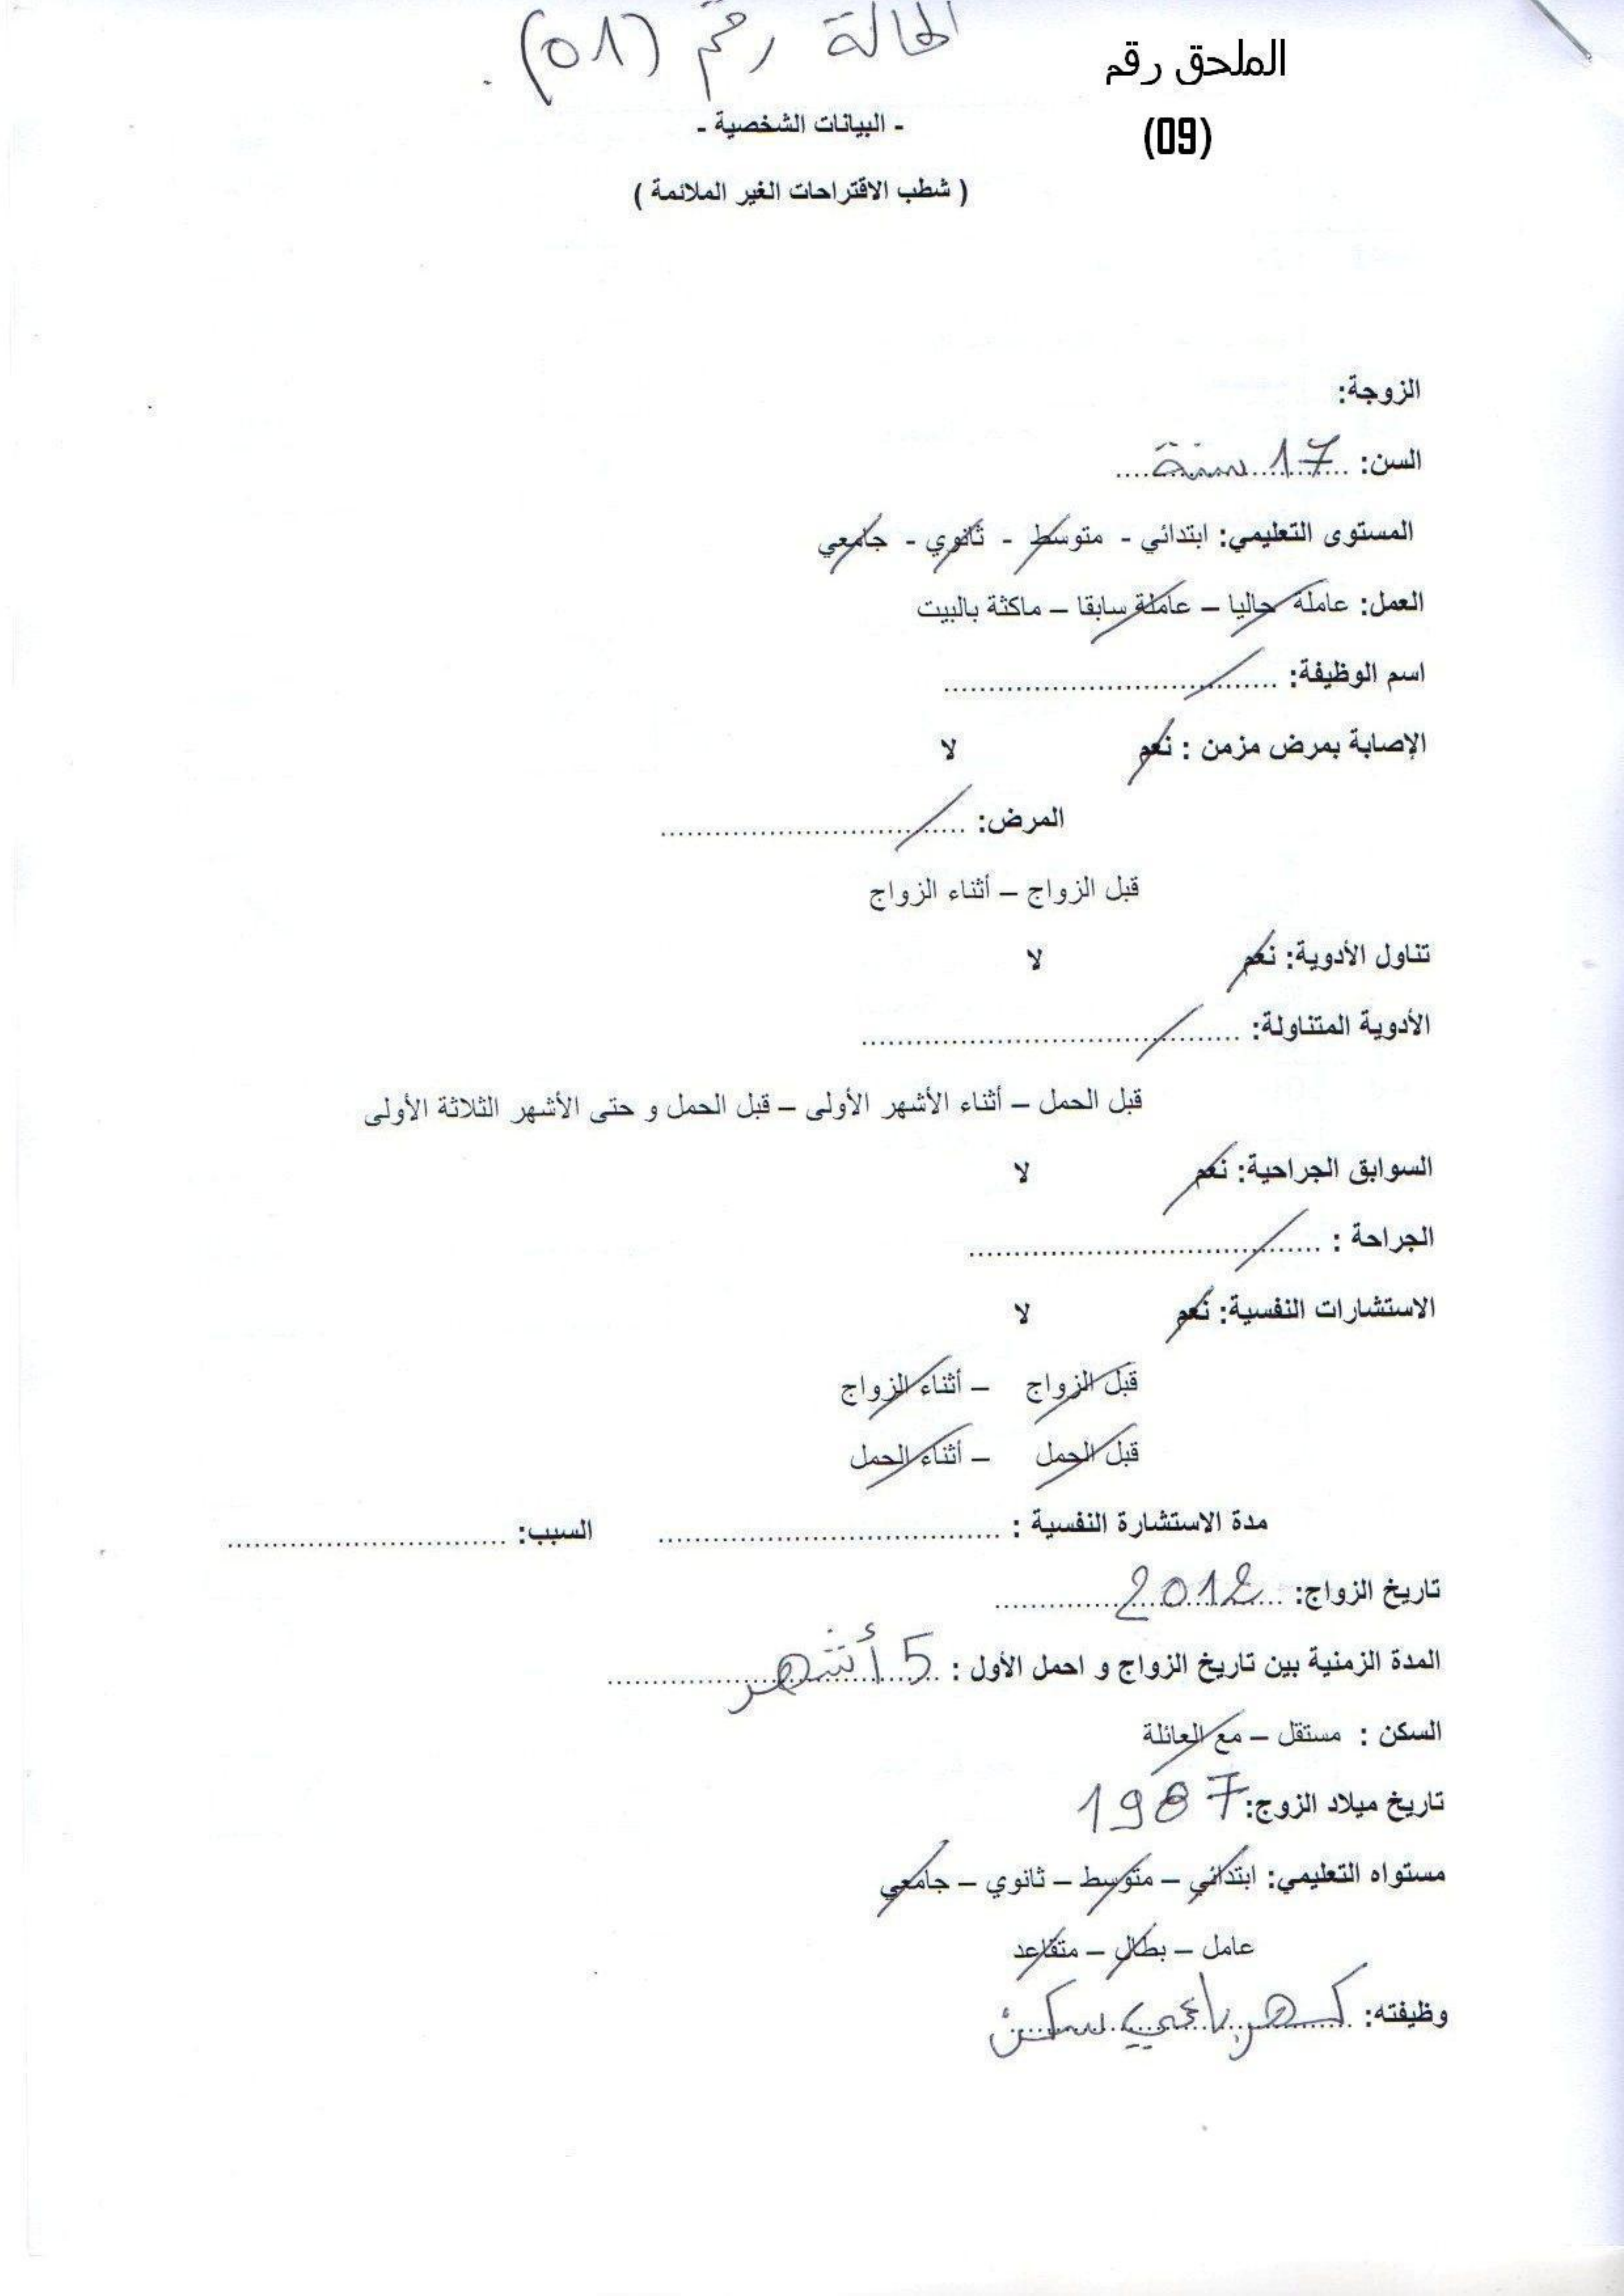 الحالة رقم (01).
الملحق رقم
(09)
- البيانات الشخصية -
( شطب الاقتراحات الغير الملائمة )
الزوجة:
السن: 17 سنة
المستوى التعليمي: ابتدائي - متوسط - ثانوي - جامعي
العمل: عاملة حاليا – عاملة سابقا – ماكثة بالبيت
اسم الوظيفة: ..................................
الإصابة بمرض مزمن : نعم لا
المرض: ..................................
قبل الزواج – أثناء الزواج
تناول الأدوية: نعم لا
الأدوية المتناولة: ..................................
قبل الحمل – أثناء الأشهر الأولى – قبل الحمل و حتى الأشهر الثلاثة الأولى
السوابق الجراحية: نعم لا
الجراحة : ..................................
الاستشارات النفسية: نعم لا
قبل الزواج – أثناء الزواج
قبل الحمل – أثناء الحمل
مدة الاستشارة النفسية : .................................. السبب: ..............................
تاريخ الزواج: 2012
المدة الزمنية بين تاريخ الزواج و احمل الأول : 5 أشهر
السكن : مستقل – مع العائلة
تاريخ ميلاد الزوج: 1987
مستواه التعليمي: ابتدائي – متوسط – ثانوي – جامعي
عامل – بطال – متقاعد
وظيفته: كهربائي سكن